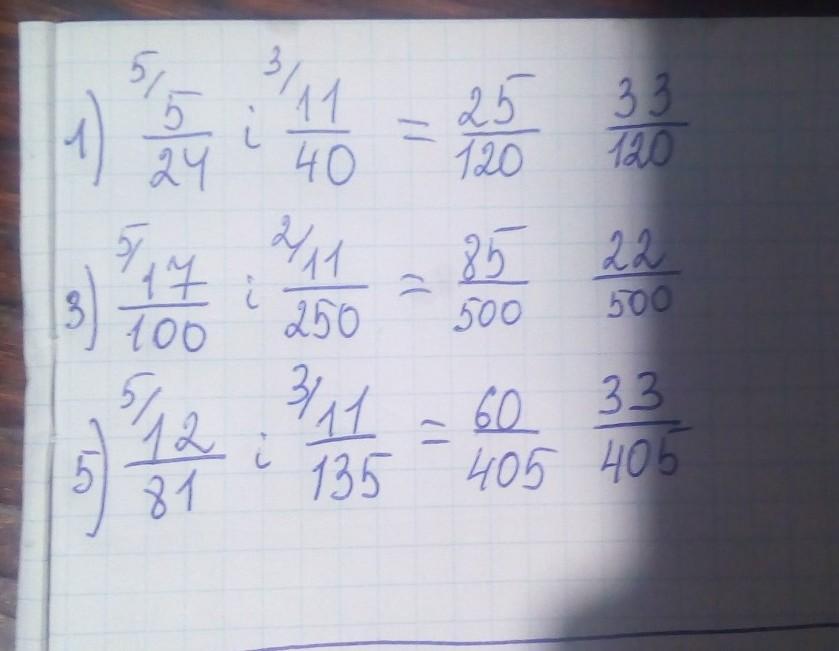 1) ⁵/ 5/24 і ³/ 11/40 = 25/120 33/120
3) ⁵/ 17/100 і ²/ 11/250 = 85/500 22/500
5) ⁵/ 12/81 і ³/ 11/135 = 60/405 33/405